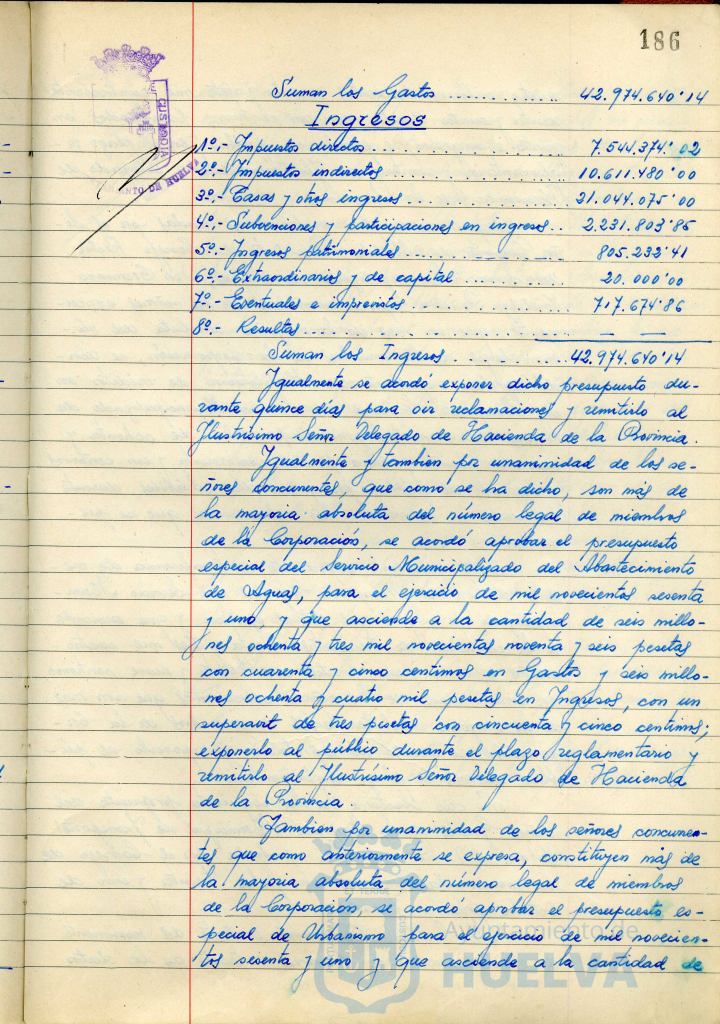 186
CUSTODIA
NTO DE HUELVA
Suman los Gastos .......... 42.974.640'14
Ingresos
1º.- Impuestos directos .......... 7.544.374'02
2º.- Impuestos indirectos .......... 10.611.480'00
3º.- Tasas y otros ingresos .......... 21.044.075'00
4º.- Subvenciones y participaciones en ingresos .. 2.231.803'85
5º.- Ingresos patrimoniales .......... 805.232'41
6º.- Extraordinarios y de capital .......... 20.000'00
7º.- Eventuales e imprevistos .......... 717.674'86
8º.- Resultas .......... — —
Suman los Ingresos .......... 42.974.640'14
Igualmente se acordó exponer dicho presupuesto du-
rante quince días para oir reclamaciones y remitirlo al
Ilustrísimo Señor Delegado de Hacienda de la Provincia.
Igualmente y tambien por unanimidad de los se-
ñores concurrentes, que como se ha dicho, son más de
la mayoria absoluta del número legal de miembros
de la Corporación, se acordó aprobar el presupuesto
especial del Servicio Municipalizado del Abastecimiento
de Aguas, para el ejercicio de mil novecientos sesenta
y uno, y que asciende a la cantidad de seis millo-
nes ochenta y tres mil novecientas noventa y seis pesetas
con cuarenta y cinco centimos en Gastos y seis millo-
nes ochenta y cuatro mil pesetas en Ingresos, con un
superavit de tres pesetas con cincuenta y cinco centimos;
exponerlo al público durante el plazo reglamentario y
remitirlo al Ilustrísimo Señor Delegado de Hacienda
de la Provincia.
Tambien por unanimidad de los señores concurren-
tes que como anteriormente se expresa, constituyen más de
la mayoria absoluta del número legal de miembros
de la Corporación, se acordó aprobar el presupuesto es-
pecial de Urbanismo para el ejercicio de mil novecien-
tos sesenta y uno y que asciende a la cantidad de
Ayuntamiento de
HUELVA